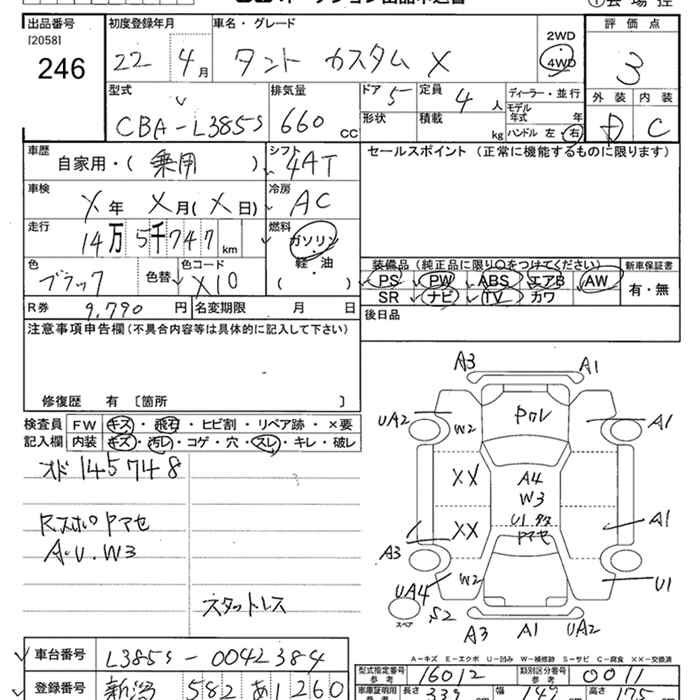 出品番号 初度登録年月 車名・グレード 評価点
[2058]
246
22 4月 タント カスタム X
2WD
4WD
3
外装 内装
D C
型式 排気量 ドア 定員 ディーラー・並行
CBA-L385S 660 CC 5 4人
モデル年式 年
形状 積載 kg ハンドル 左・右
車歴 シフト セールスポイント (正常に機能するものに限ります)
自家用・( 乗用 ) 4AT
車検 冷房
X年 X月( X日) AC
走行 燃料
14万5千747km ガソリン
軽・油
( )
色 色替 色コード
ブラック X10
装備品 (純正品に限り○をつけてください) 新車保証書
PS PW ABS エアB AW 有・無
SR ナビ TV カワ
R券 9,790円 名変期限 月 日
後日品
注意事項申告欄(不具合内容等は具体的に記入して下さい)
修復歴 有 〔箇所 〕
検査員記入欄
FW キズ・飛石・ヒビ割・リペア跡・×要
内装 キズ・汚レ・コゲ・穴・スレ・キレ・破レ
オド 145748
Rスポロ ヤマセ
A・U・W3
スタットレス
A3 A1
UA2 W2 P クレ A1
XX A4
W3
XX U1 A1
ヤマセ
A3
UA4 W2 U1
スペア S2
A3 A1 UA2
A-キズ E-エクボ U-凹み W-補修跡 S-サビ C-腐食 XX-交換済
車台番号 L385S-0042384
型式指定番号 参考 16012 類別区分番号 参考 0011
登録番号 新潟 582 あ 1260
車庫証明用 参考 長さ 339 幅 147 高さ 175